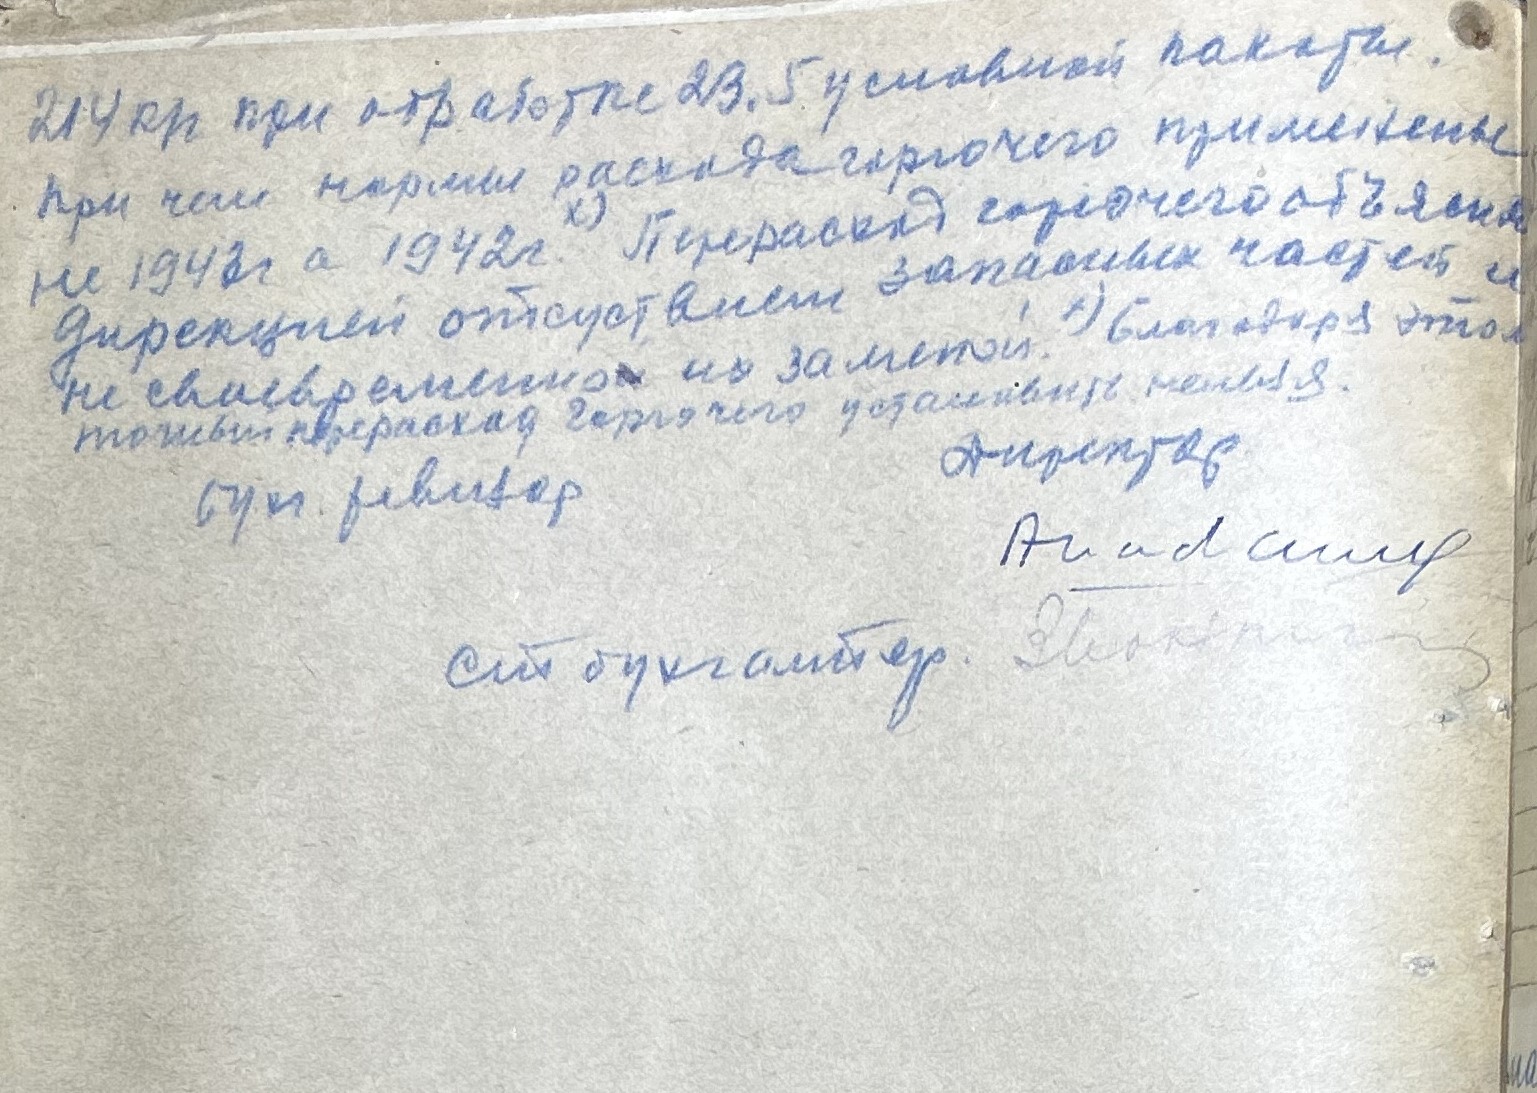 214 кг при обработке 23.5 условной пахоты.
при чем нормы расхода горючего применены
не 1943г а 1942г. х) Перерасход горючего объясня
дирекцией отсутствием запасных частей и
не своевременно их заменой. х) Благодаря этом
точный перерасход горючего установить нельзя.
Бух. ревизор
Директор
Ст бухгалтер.